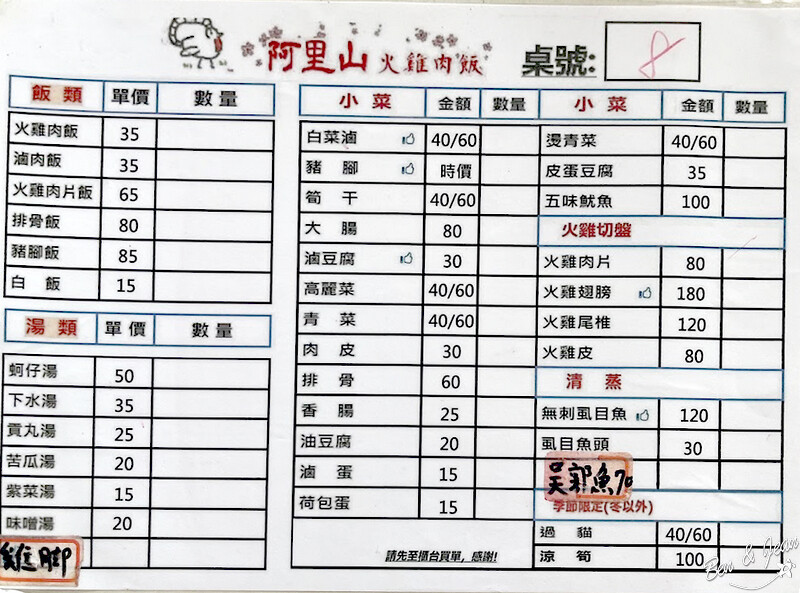 阿里山 火雞肉飯 桌號: 8
飯類 單價 數量
火雞肉飯 35
滷肉飯 35
火雞肉片飯 65
排骨飯 80
豬腳飯 85
白飯 15
湯類 單價 數量
蚵仔湯 50
下水湯 35
貢丸湯 25
苦瓜湯 20
紫菜湯 15
味噌湯 20
雞腳
小菜 金額 數量
白菜滷 40/60
豬腳 時價
筍干 40/60
大腸 80
滷豆腐 30
高麗菜 40/60
青菜 40/60
肉皮 30
排骨 60
香腸 25
油豆腐 20
滷蛋 15
荷包蛋 15
請先至櫃台買單，感謝!
小菜 金額 數量
燙青菜 40/60
皮蛋豆腐 35
五味魷魚 100
火雞切盤
火雞肉片 80
火雞翅膀 180
火雞尾椎 120
火雞皮 80
清蒸
無刺虱目魚 120
虱目魚頭 30
吳郭魚70
季節限定(冬以外)
過貓 40/60
涼筍 100
Ben & Jean